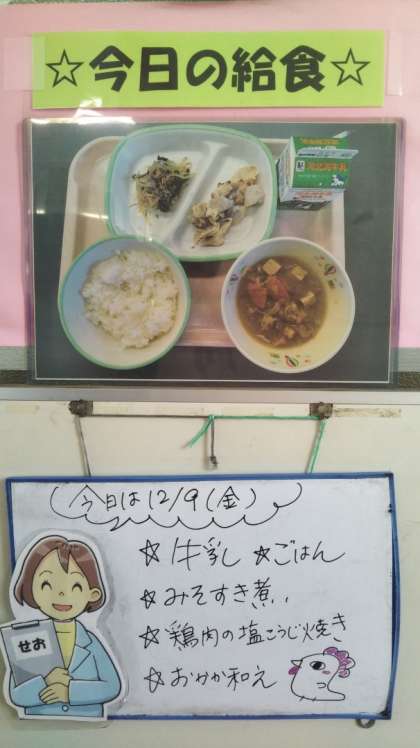 ☆今日の給食☆
今日は12/9(金)
☆牛乳 ☆ごはん
☆みそすき煮
☆鶏肉の塩こうじ焼き
☆おかか和え
せお